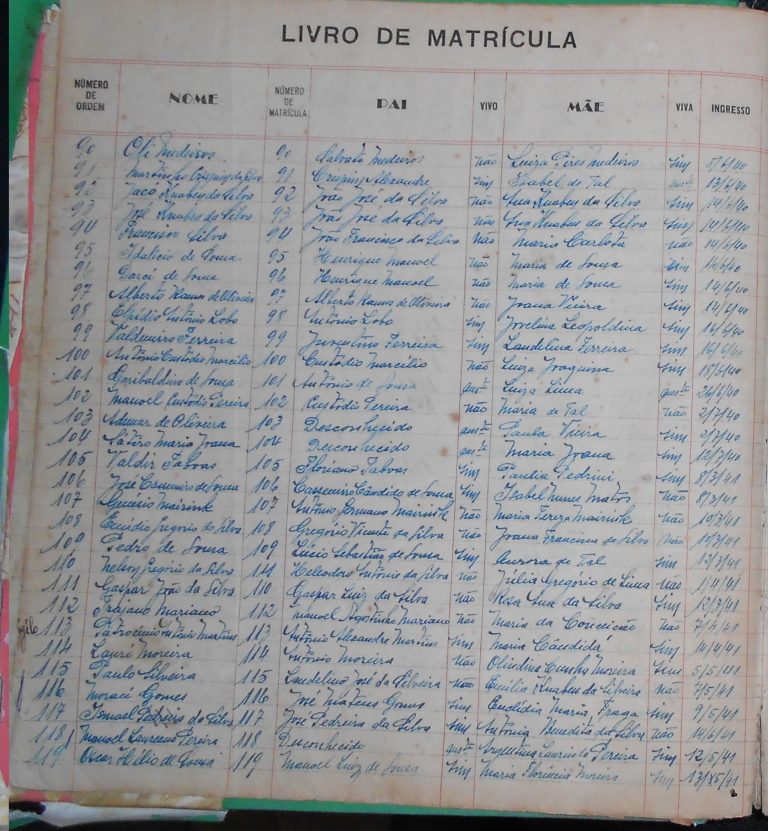 LIVRO DE MATRÍCULA
NÚMERO DE ORDEM NOME NÚMERO DE MATRÍCULA PAI VIVO MÃE VIVA INGRESSO
90 Oli Medeiros 90 Medeiros não Luiza Pires Medeiros Sim 5/6/40
91 91 Crispim Alexandre Sim Isabel de Tal 13/6/40
92 Jacó Knabes da Silva 92 João José da Silva não Ana Knabes da Silva Sim 14/6/40
93 José Knabes da Silva 93 João José da Silva não Ana Knabes da Silva Sim 14/6/40
94 Francisco Silva 94 João Francisco da Silva não Maria Carlota não 14/6/40
95 Idalicio de Souza 95 Henrique Manoel não Maria de Sousa Sim 14/6/40
96 de Souza 96 Henrique Manoel não Maria de Sousa Sim 14/6/40
97 Alberto Ramos de Oliveira 97 Alberto Ramos de Oliveira não Joana Vieira Sim 14/6/40
98 Antônio Lobo 98 Antônio Lobo Sim Jovelina Leopoldina Sim 14/6/40
99 Valdemiro Ferreira 99 Juventino Ferreira Sim Laudelina Ferreira Sim 16/6/40
100 Antônio Custódio Marcilio 100 Custódio Marcilio não Luiza Joaquina Sim 18/6/40
101 Garibaldino de Souza 101 Antônio de Sousa ausᵗᵉ Luiza Lima ausᵗᵉ 26/6/40
102 Manoel Custódio Pereira 102 Custódio Pereira não Maria de Tal não 2/7/40
103 Ademar de Oliveira 103 Desconhecido ausᵗᵉ Paula Vieira Sim 2/7/40
104 Mario Joana 104 Desconhecido ausᵗᵉ Maria Joana Sim 12/7/40
105 Valdir Taboas 105 Floriano Taboas Sim Paulia Pedrini Sim 8/3/41
106 José Casemiro de Souza 106 Cassemiro Cândido de Sousa Sim Isabel Nunes Matos não 8/3/41
107 Mairink 107 Antônio Germano Mairink não Maria Tereza Mairink não 10/3/41
108 Gregorio da Silva 108 Gregório Vicente da Silva não Joana Francisca da Silva não 10/3/41
109 Pedro de Sousa 109 Lúcio Sebastião de Sousa Sim Aurora de Tal Sim 13/3/41
110 Nelson Gregório da Silva 111 Heleodoro Antônio da Silva não Júlia Gregório de Lima não 1/4/41
111 Gaspar João da Silva 110 Gaspar Luiz da Silva não Rosa Ana da Silva Sim 12/3/41
112 Trajano Mariano 112 Manoel Agostinho Mariano não Maria da Conceicão não 7/4/41
113 Patrocinio Antônio Martins 113 Antônio Alexandre Martins Sim Maria Cândidá Sim 14/4/41
114 Lauri Moreira 114 Antônio Moreira não Olindina Cunha Moreira Sim 5/5/41
115 Paulo Silveira 115 Laudelino José da Silveira não Emília Knabes da Silveira não 7/5/41
116 Moraci Gomes 116 José Mateus Gomes Sim Maria Fraga Sim 9/5/41
117 Ismael Pedreiro da Silva 117 José Pedreira da Silva Sim Antônia Benedita da Silva não 14/6/41
118 Manoel Laureano Pereira 118 Desconhecido ausᵗᵉ Argentina Laurindo Pereira Sim 12/5/41
119 Oscar Hélio de Souza 119 Manoel Luiz de Souza Sim Maria Florencia Moreira Sim 13/5/41